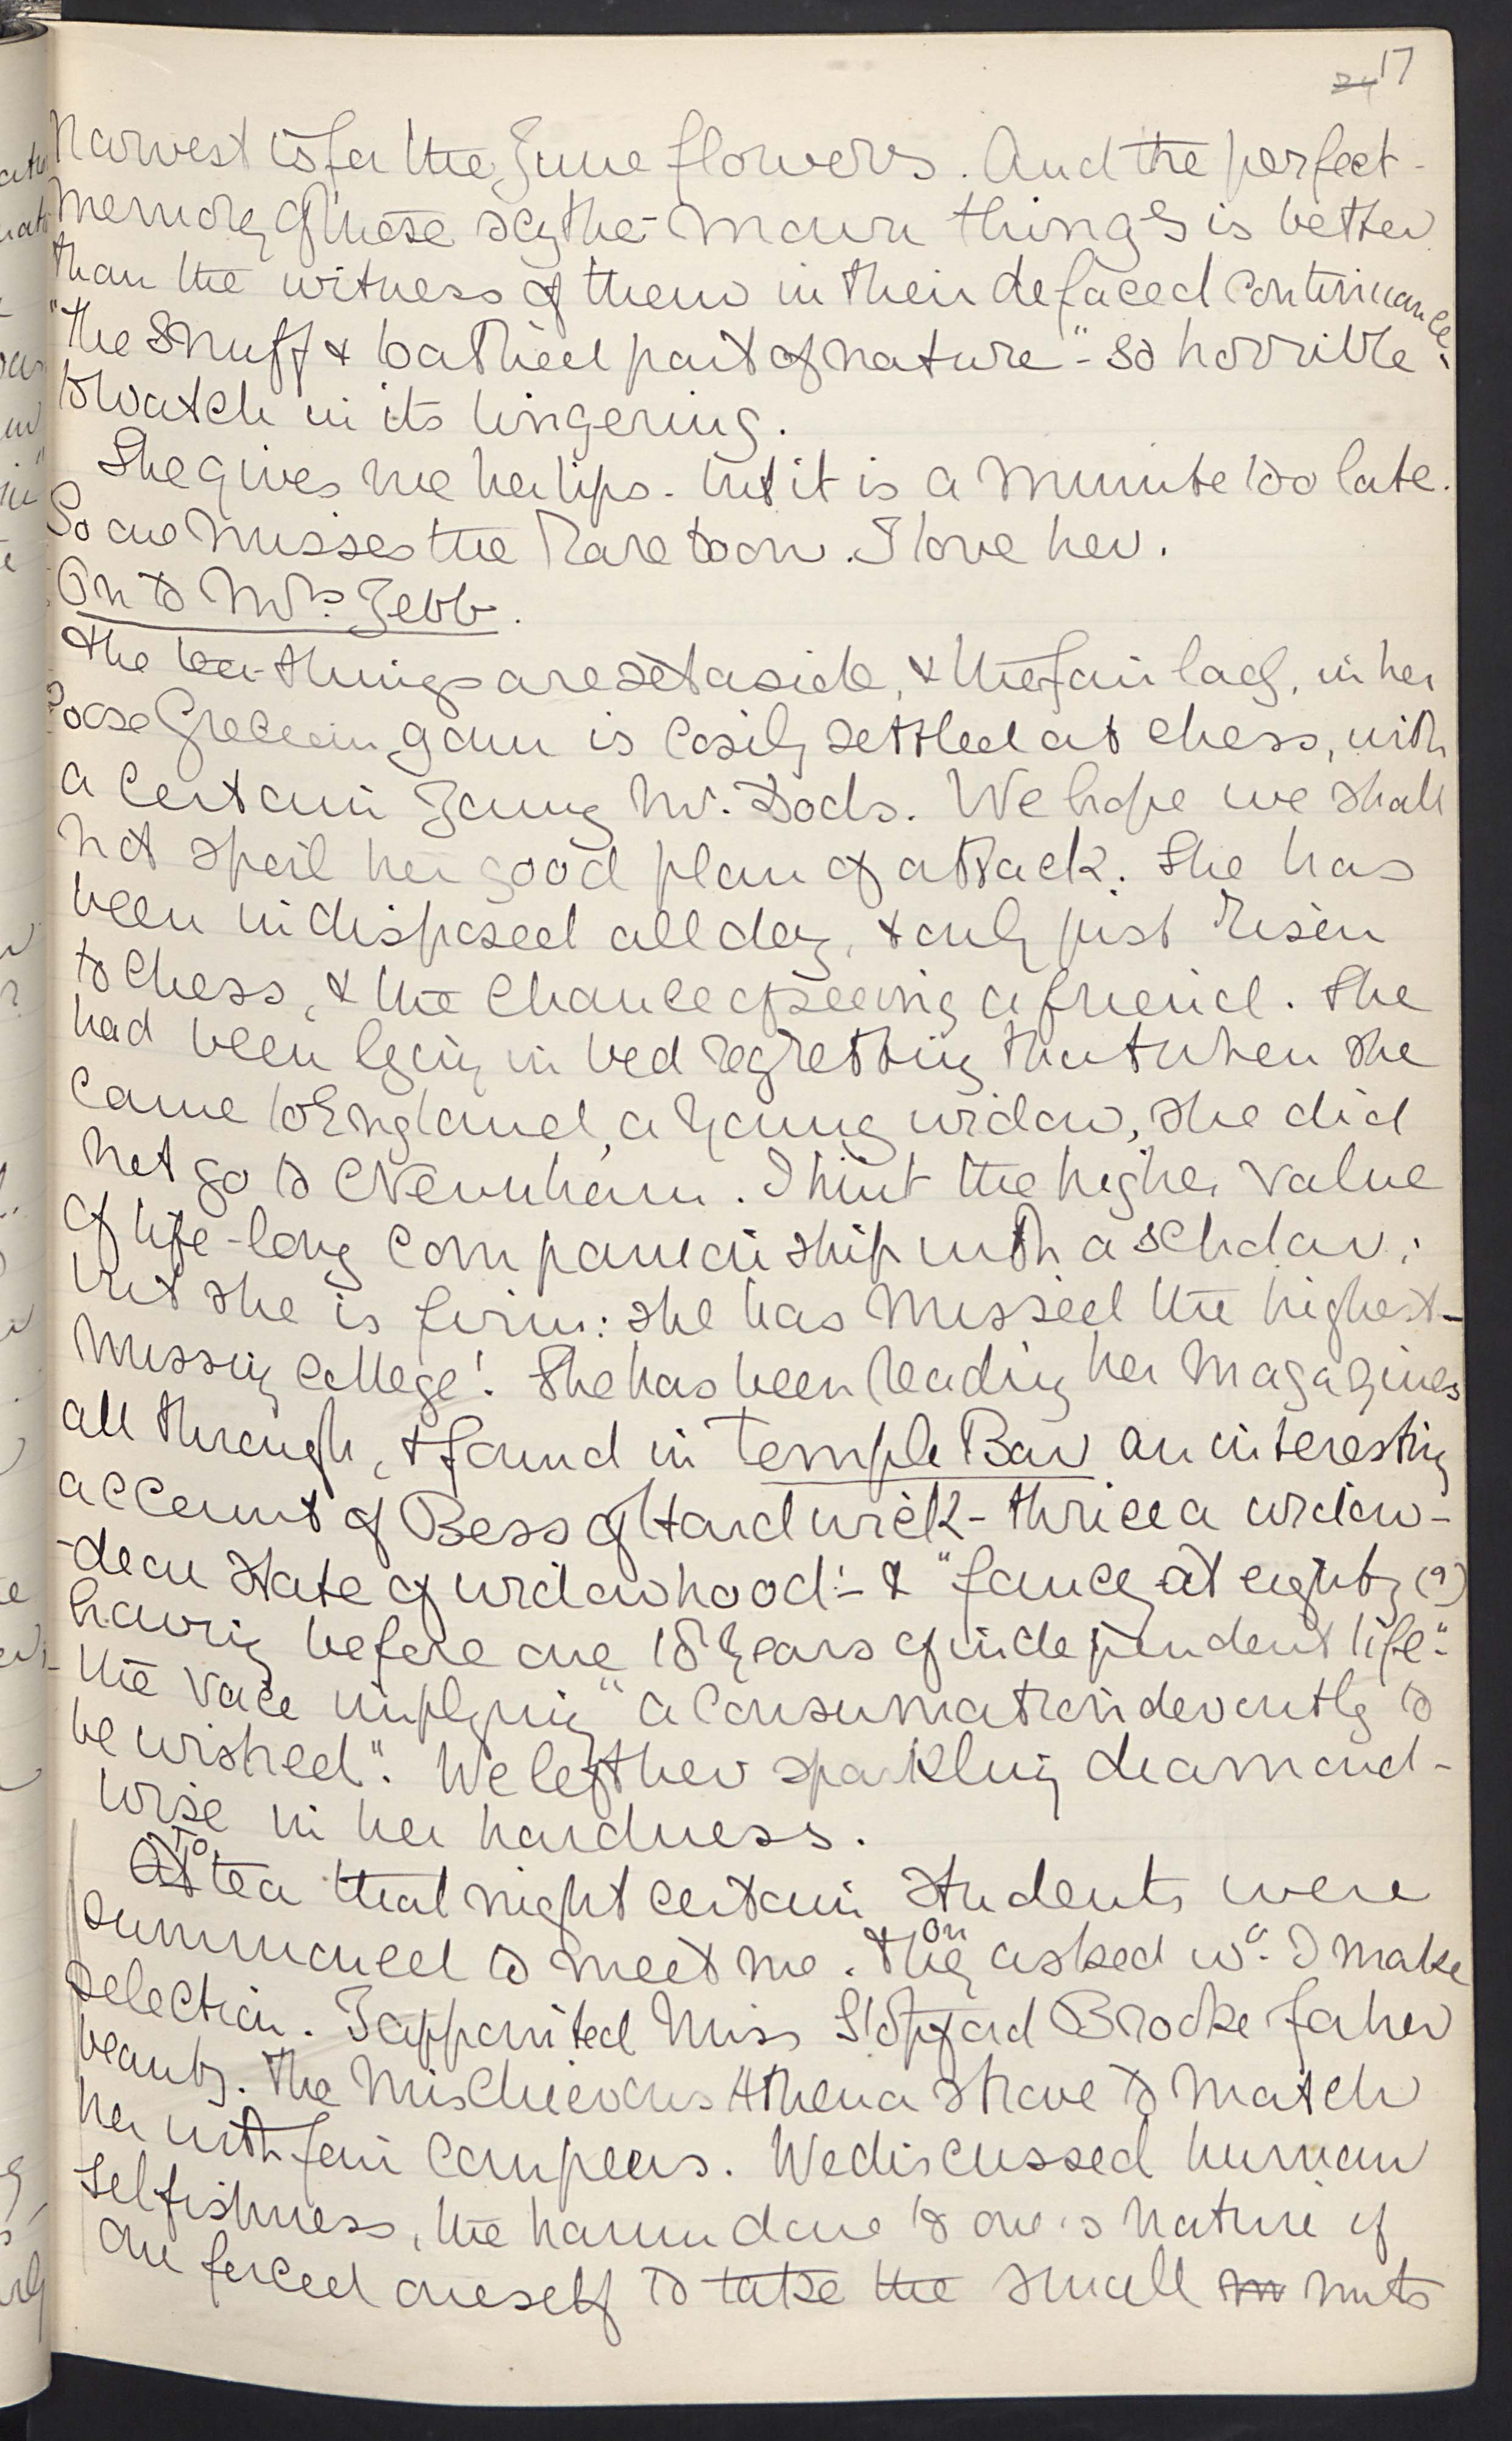 24 17
harvest is for the June flowers. And the perfect
memory of these scythe-mown things is better
than the witness of them in their defaced continuance -
"the snuff & loathed part of nature" - so horrible
to watch in its lingering.
She gives me her lips - but it is a minute too late.
So one misses the rare boon. I love her.
On to Mrs. Jebb.
The tea-things are set aside, & the fair lady, in her
loose Grecian gown is cosily settled at chess, with
a certain young Mr. Dods. We hope we shall
not spoil her good plan of attack. She has
been indisposed all day, & only just risen
to chess, & the chance of seeing a friend. She
had been lying in bed regretting that when she
came to England, a young widow, she did
not go to Newnham. I hint the higher value
of life-long companionship with a scholar:
but she is firm: she has missed the highest -
missing college! She has been reading her magazines
all through, & found in Temple Bar an interesting
account of Bess of Hardwick - thrice a widow -
- dear state of widowhood! - & "fancy at eighty (?)
having before one 18 years of independent life" -
the voice implying "a consumation devoutly to
be wished". We left her sparkling diamond-
wise in her hardness.
At To tea that night certain students were
summoned to meet me. They on asked wd. I make
selection. I appointed Miss Stopford Brooke for her
beauty. The mischievous Athena strove to match
her with fair compeers. We discussed human
selfishness, the harm done to one's nature if
one forced oneself to take the small m nuts